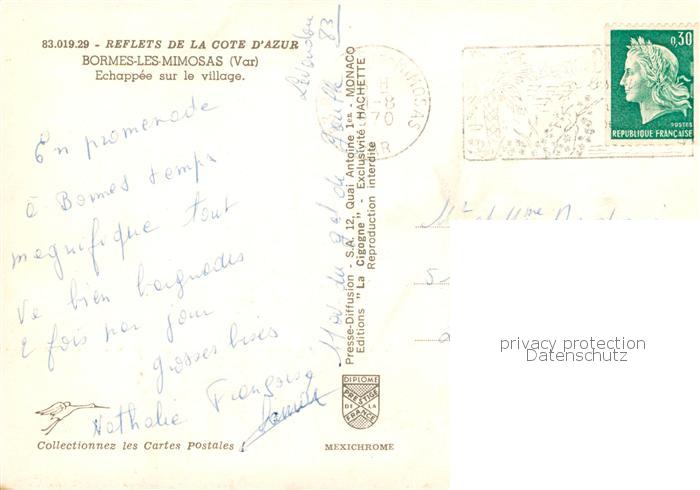 83.019.29 - REFLETS DE LA COTE D'AZUR
BORMES-LES-MIMOSAS (Var)
Echappée sur le village.
En promenade
à Bormes temps
magnifique tout
va bien baignades
2 fois par jour
grosses bises
Nathalie Françoise
Collectionnez les Cartes Postales
MEXICHROME
DIPLOME
PRESTIGE
DE LA
FRANCE
Presse-Diffusion - S.A. 12, Quai Antoine 1er - MONACO
Editions "La Cigogne" - Exclusivité HACHETTE
Reproduction interdite
Le Lavandou
83
MIMOSAS
8
70
VAR
0,30
POSTES
REPUBLIQUE FRANÇAISE
privacy protection
Datenschutz